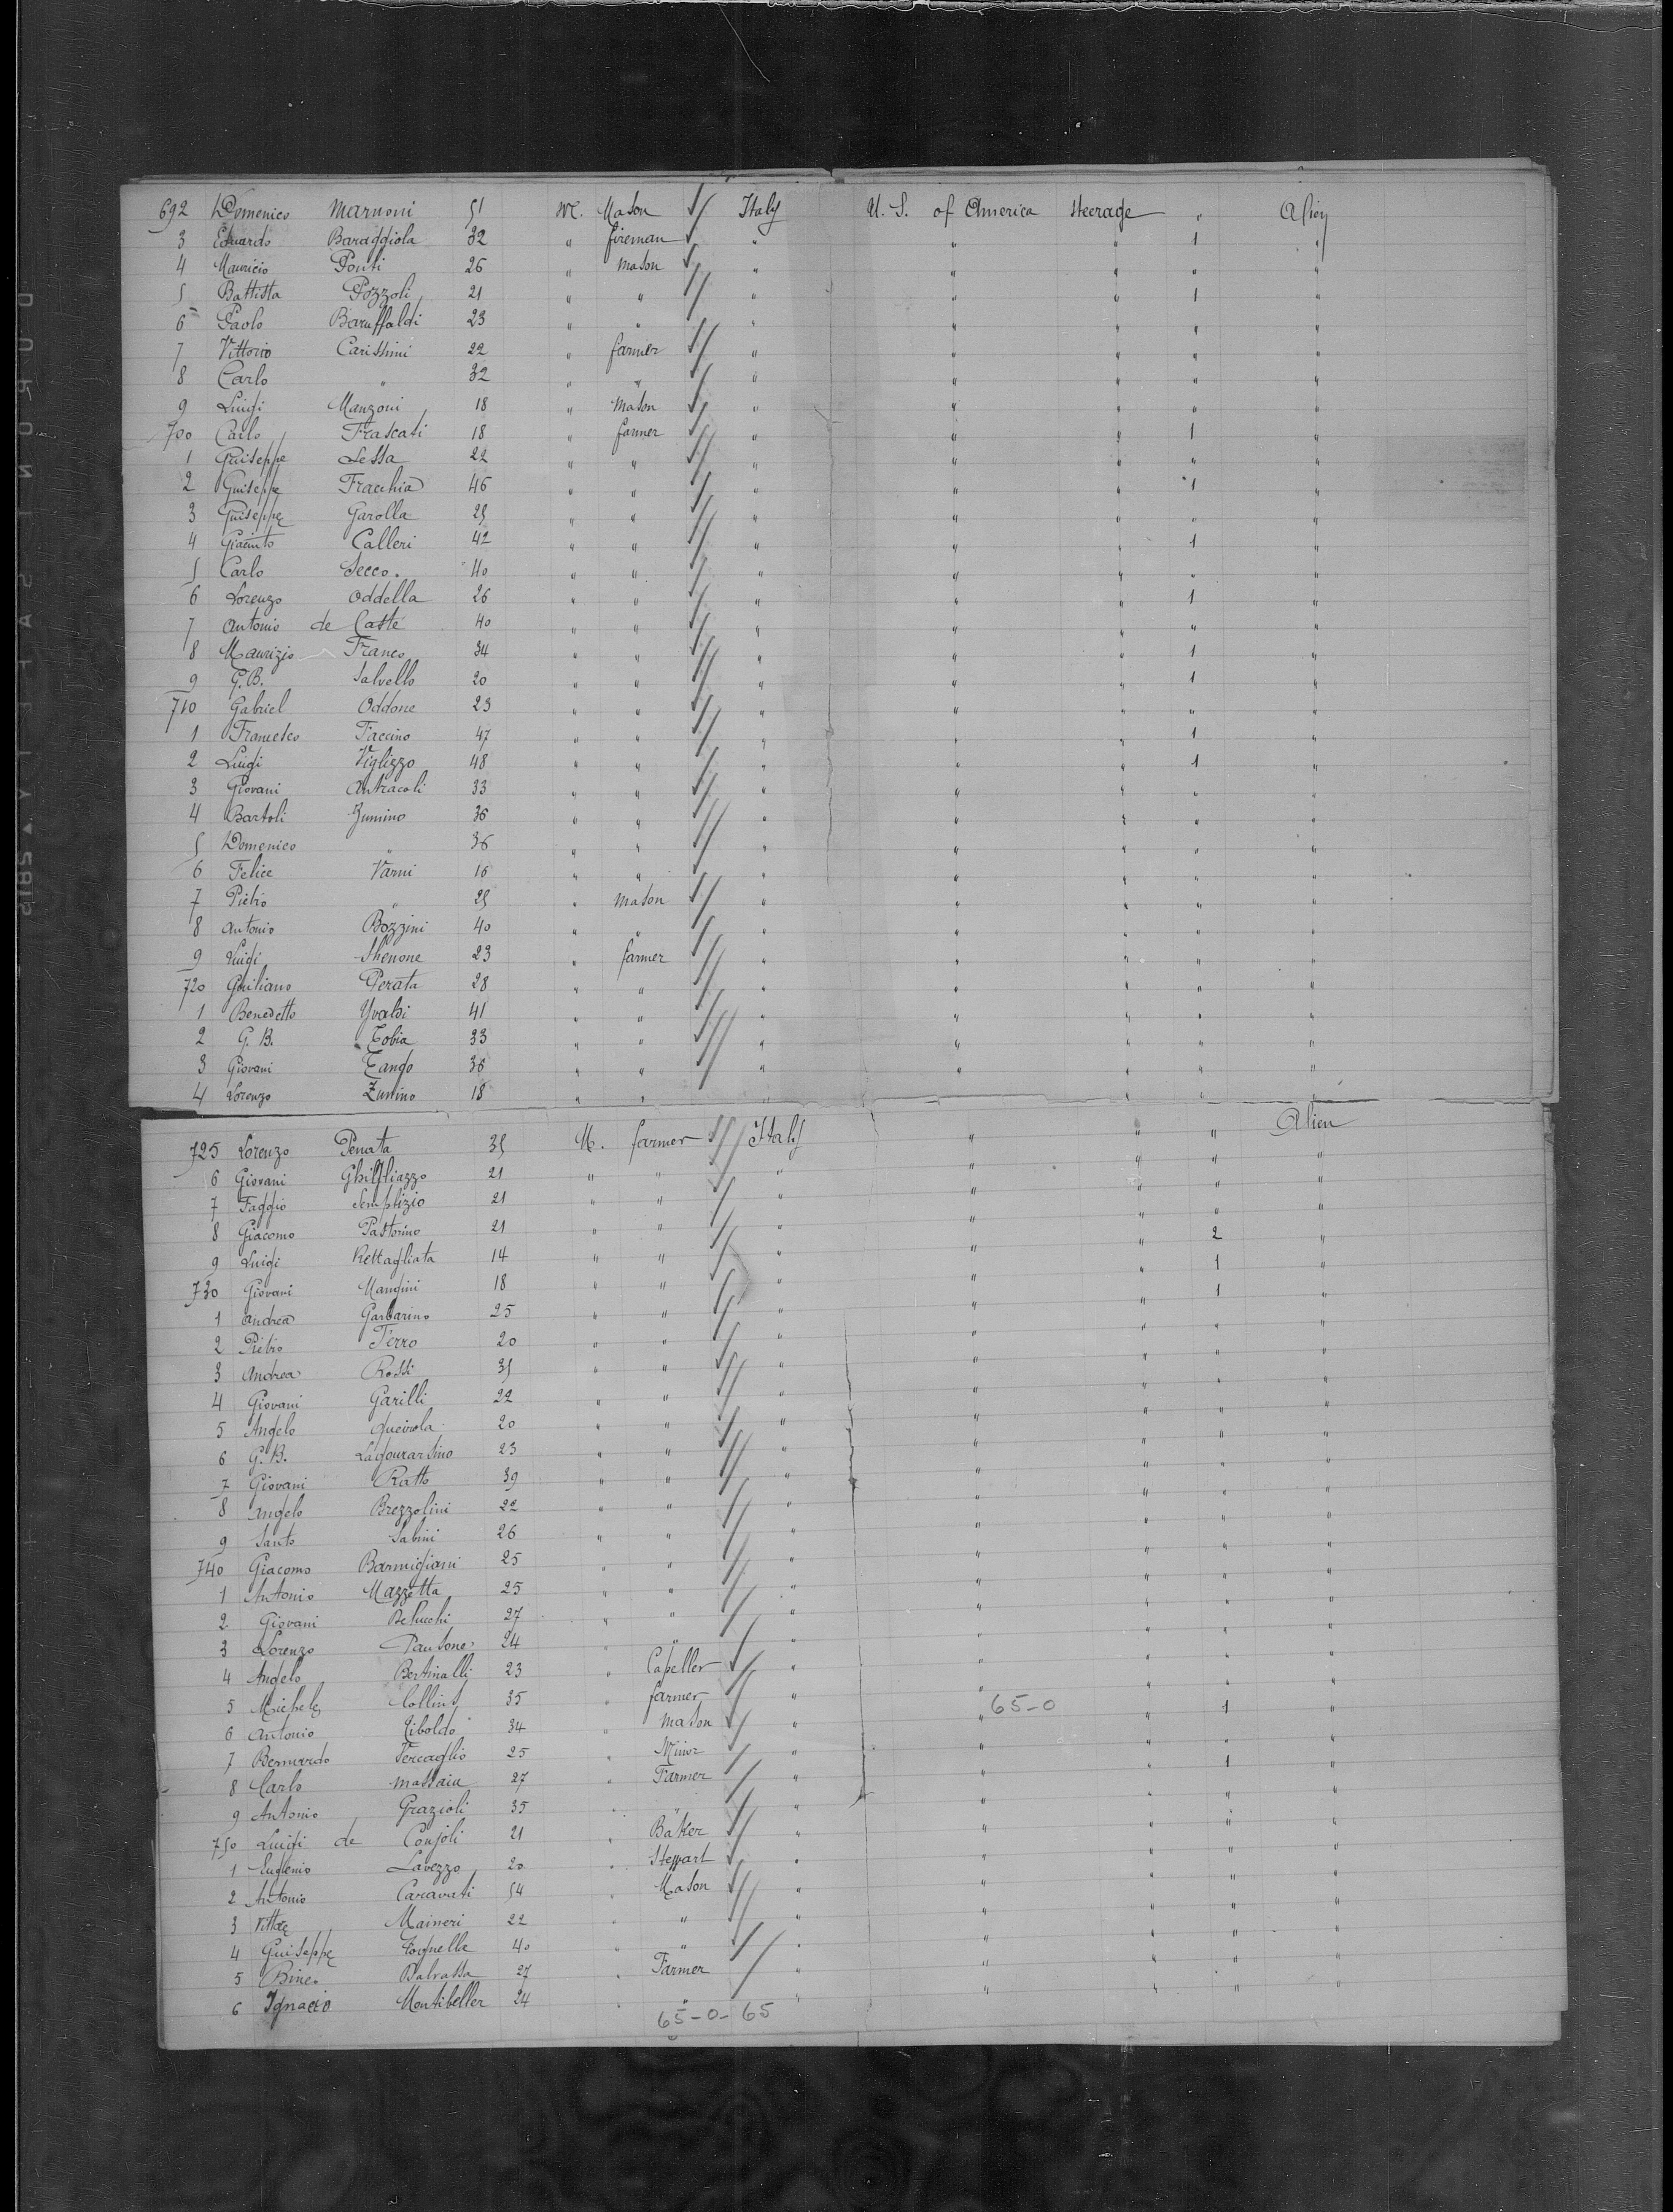 692 Domenico Marnoni 51 M. Mason Italy U. S. of America Steerage " Alien
3 Eduardo Baraggiola 32 " fireman " " " 1 "
4 Mauricio Ponti 26 " mason " " " " "
5 Battista Pozzoli 21 " " " " " 1 "
6 Paolo Baruffaldi 23 " " " " " " "
7 Vittorio Carissimi 22 " farmer " " " " "
8 Carlo " 32 " " " " " " "
9 Luigi Manzoni 18 " Mason " " " " "
700 Carlo Frascati 18 " farmer " " " 1 "
1 Guiseppe Lessa 22 " " " " " " "
2 Guiseppe Fracchia 46 " " " " " 1 "
3 Guiseppe Garolla 25 " " " " " " "
4 Giacinto Calleri 42 " " " " " 1 "
5 Carlo Secco. 40 " " " " " " "
6 Lorenzo Oddella 26 " " " " " 1 "
7 Antonio de Caste 40 " " " " " " "
8 Maurizio Franco 34 " " " " " 1 "
9 G. B. Salvello 20 " " " " " 1 "
710 Gabriel Oddone 23 " " " " " " "
1 Francesco Faccino 47 " " " " " 1 "
2 Luigi Viglizzo 48 " " " " " 1 "
3 Giovani Antracoli 33 " " " " " " "
4 Bartoli Zunino 36 " " " " " " "
5 Domenico " 36 " " " " " " "
6 Felice Varni 16 " " " " " " "
7 Pietro " 25 " mason " " " " "
8 Antonio Bozzini 40 " " " " " " "
9 Luigi Shenone 23 " farmer " " " " "
720 Guiliano Perata 28 " " " " " " "
1 Benedetto Yvaldi 41 " " " " " " "
2 G. B. Tobia 33 " " " " " " "
3 Giovani Tango 36 " " " " " " "
4 Lorenzo Zunino 18 " " " " " " "
725 Lorenzo Perrata 35 M. farmer Italy " " " Alien
6 Giovani Ghilfliazzo 21 " " " " " " "
7 Faggio Semplizio 21 " " " " " " "
8 Giacomo Pastorino 21 " " " " " 2 "
9 Luigi Rettagliata 14 " " " " " 1 "
730 Giovani Mangini 18 " " " " " 1 "
1 Andrea Garbarino 25 " " " " " " "
2 Pietro Ferro 20 " " " " " " "
3 Andrea Rossi 35 " " " " " " "
4 Giovani Garilli 22 " " " " " " "
5 Angelo Queirola 20 " " " " " " "
6 G. B. 23 " " " " " " "
7 Giovani Ratto 39 " " " " " " "
8 Angelo Brezzolini 22 " " " " " " "
9 Santo Sabini 26 " " " " " " "
740 Giacomo Barmigiani 25 " " " " " " "
1 Antonio Mazzetta 25 " " " " " " "
2 Giovani Belucchi 27 " " " " " " "
3 Lorenzo Pausone 24 " " " " " " "
4 Angelo Bertinalli 23 " Capeller " " " " "
5 Michele Collins 35 " farmer " " 65-0 " 1 "
6 Antonio Tiboldo 34 " mason " " " " "
7 Bernardo Vercaglio 25 " Minor " " " 1 "
8 Carlo Massaia 27 " Farmer " " " " "
9 Antonio Grazioli 35 " " " " " " "
750 Luigi de Conjoli 21 " Baker " " " " "
1 Eugenio Lavezzo 20 " " " " " "
2 Antonio Caravati 54 " Mason " " " " "
3 Maineri 22 " " " " " " "
4 Guiseppe Tognella 40 " " " " " " "
5 Bine. Balrassa 27 " Farmer " " " " "
6 Ignacio Montibeller 24 " " "
65-0-65